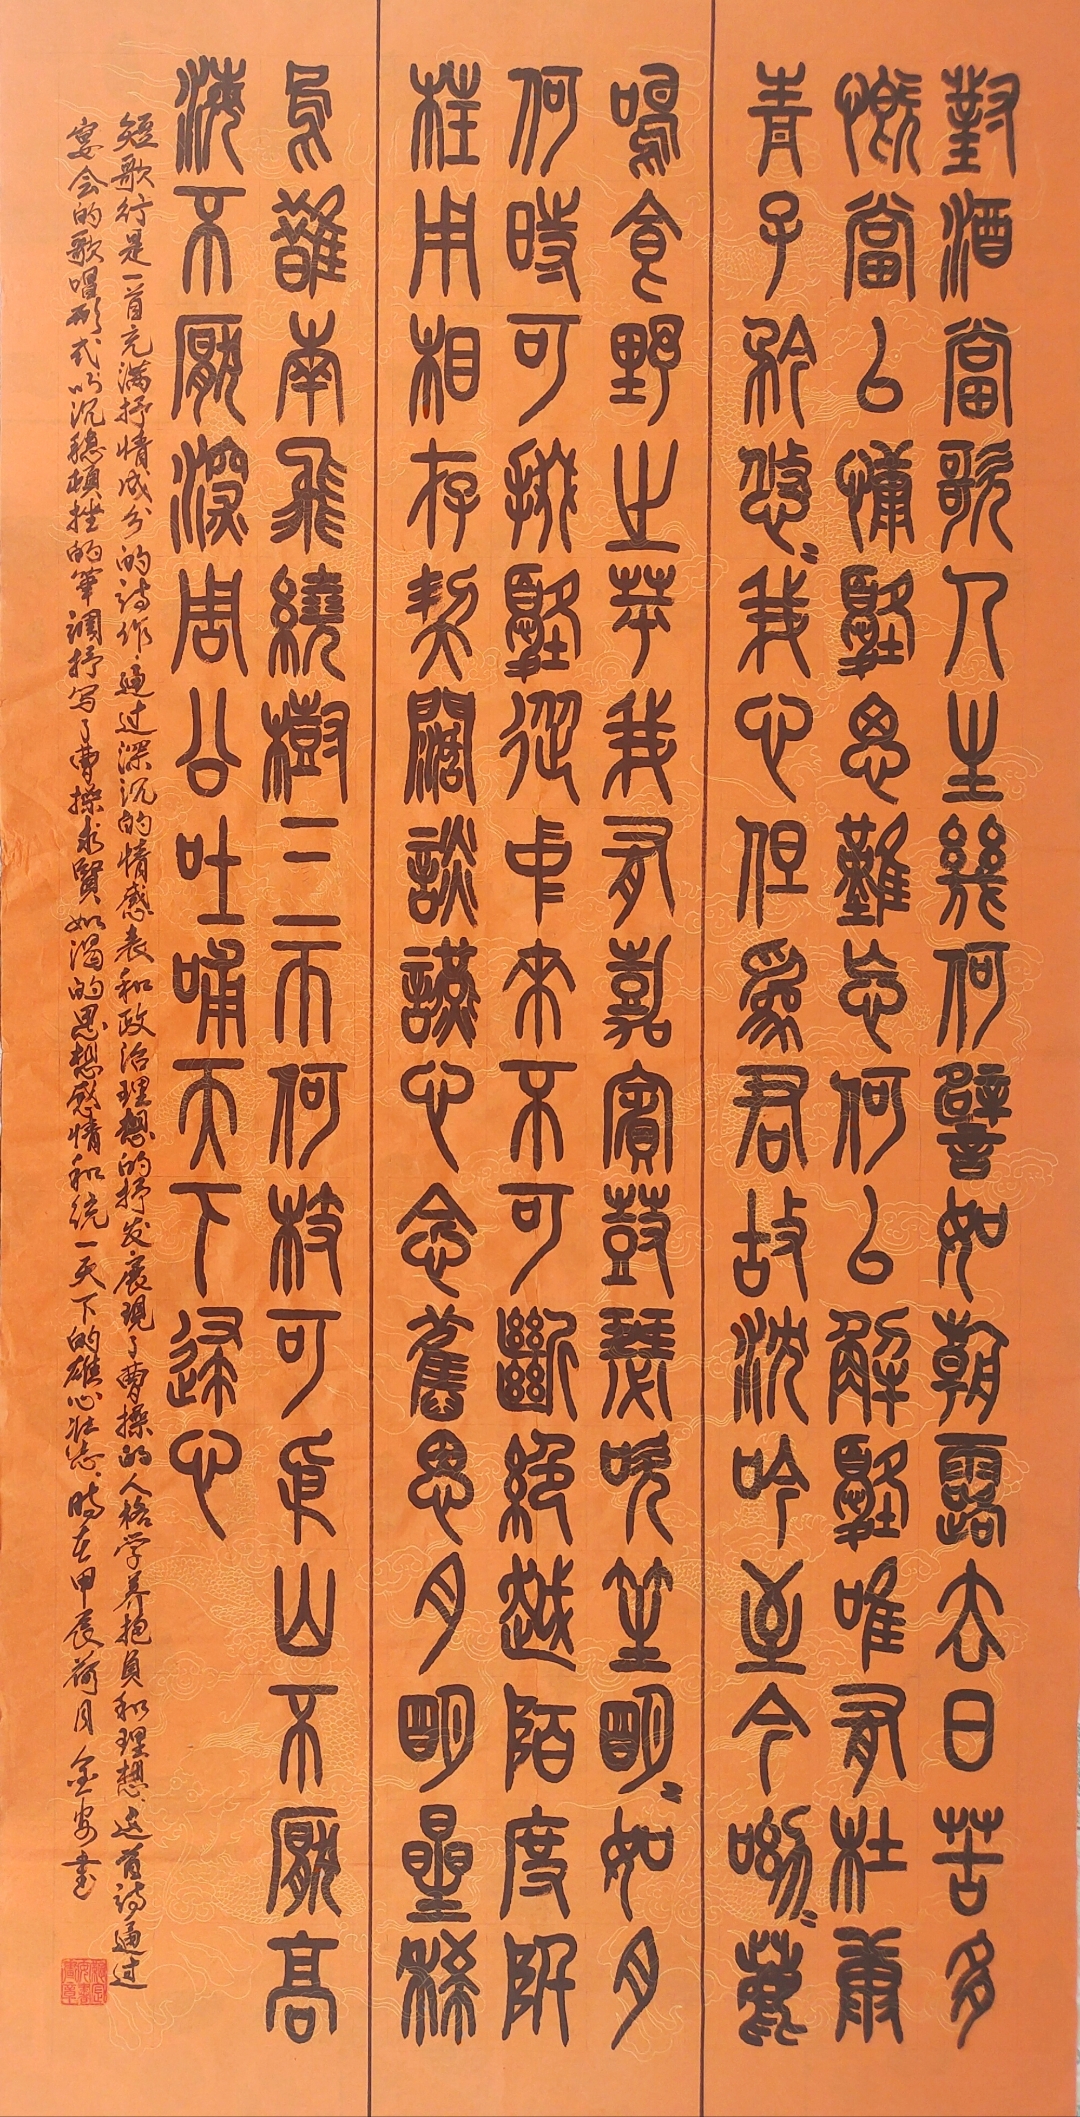 對酒當歌人生幾何譬如朝露去日苦多
慨當以慷憂思難忘何以解憂唯有杜康
青子衿悠〻我心但為君故沈吟至今呦〻鹿
鳴食野之苹我有嘉賓鼓瑟吹笙明〻如月
何時可掇憂從中來不可斷絕越陌度阡
枉用相存契闊談讌心念舊恩月明星稀
烏鵲南飛繞樹三帀何枝可依山不厭高
海不厭深周公吐哺天下歸心
短歌行是一首充满抒情成分的诗作、通过深沉的情感表和政治理想的抒发展現了曹操的人格学养抱負和理想、这首诗通过
宴会的歌唱形式以沉穩頓挫的筆调抒写了曹操求賢如渴的思想感情和统一天下的雄心壮志、時在甲辰荷月 金安书